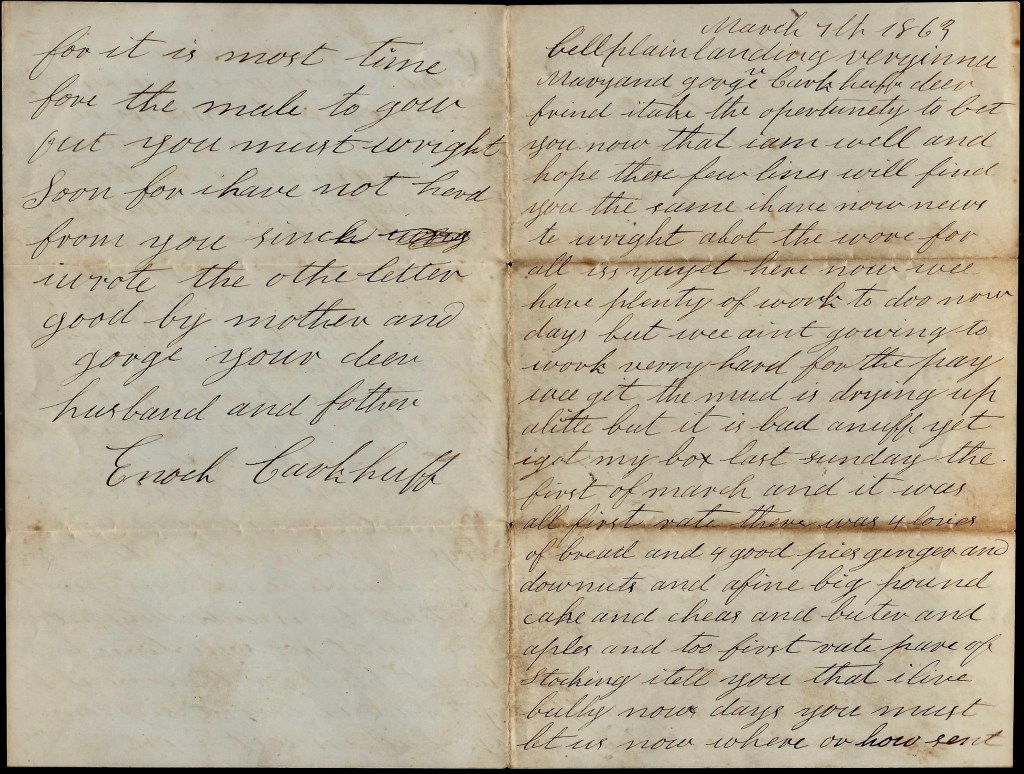 March 7th 1863
bellplain landing verginna
Maryand gorge Carkhuff deer
frind itake the opertunety to let
you now that iam well and
hope these few lines will find
you the same ihave now news
to wright abot the wore for
all iss yuyet here now wee
have plenty of work to doo now
days but wee aint gowing to
work verry hard for the pay
wee git the mud is drying up
alitte but it is bad anuff yet
igot my box last sunday the
first of march and it was
all first rate there was 4 loves
of bread and 4 good pies ginger and
downuts and afine big pound
cake and cheas and buter and
aples and too first rate pare of
stocking itell you that ilive
bully now days you must
let us now where or how sent
for it is most time
fore the male to gow
but you must wright
Soon for ihave not herd
from you since
iwrote the othe letter
good by mother and
gorge your deer
husband and fother
Enoch Carkhuff